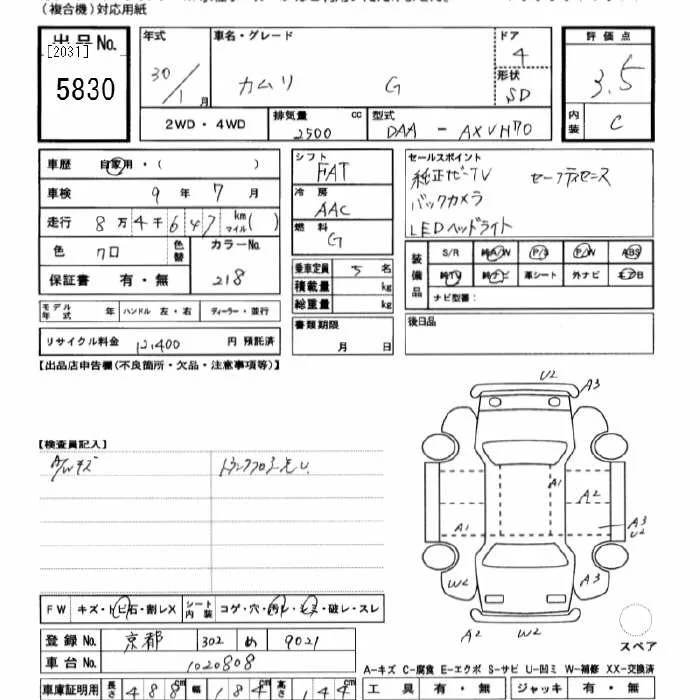 (複合機)対応用紙
出品No.
[2031]
5830
年式
30/1月
車名・グレード
カムリ G
ドア
4
形状
SD
評価点
3.5
内装
C
2WD・4WD
排気量
2500 cc
型式
DAA - AXVH70
車歴 自家用・( )
車検 9年 7月
走行 8万4千647 km マイル( )
色 クロ
色替
カラーNo.
218
保証書 有・無
モデル年式 年
ハンドル 左・右
ディーラー・並行
リサイクル料金 12,400 円 預託済
シフト
FAT
冷房
AAC
燃料
G
乗車定員 5名
積載量 kg
総重量 kg
書類期限
月 日
セールスポイント
純正ナビTV セーフティセンス
バックカメラ
LEDヘッドライト
装備品
S/R 純A/W P/S P/W ABS
純TV 純ナビ 革シート 外ナビ エアB
ナビ型番:
後日品
【出品店申告欄(不良箇所・欠品・注意事項等)】
【検査員記入】
A/Wキズ
U2
A3
A1
A2
A1
A3
U2
W2
A3
A2
W2
スペア
FW キズ・トビ石・割レX
シート内装 コゲ・穴・汚レ・キズ・破レ・スレ
登録No. 京都 302 め 9021
車台No. 1020808
車庫証明用 長さ 488cm 幅 184cm 高さ 144cm
A-キズ C-腐食 E-エクボ S-サビ U-凹ミ W-補修 XX-交換済
工具 有・無 ジャッキ 有・無